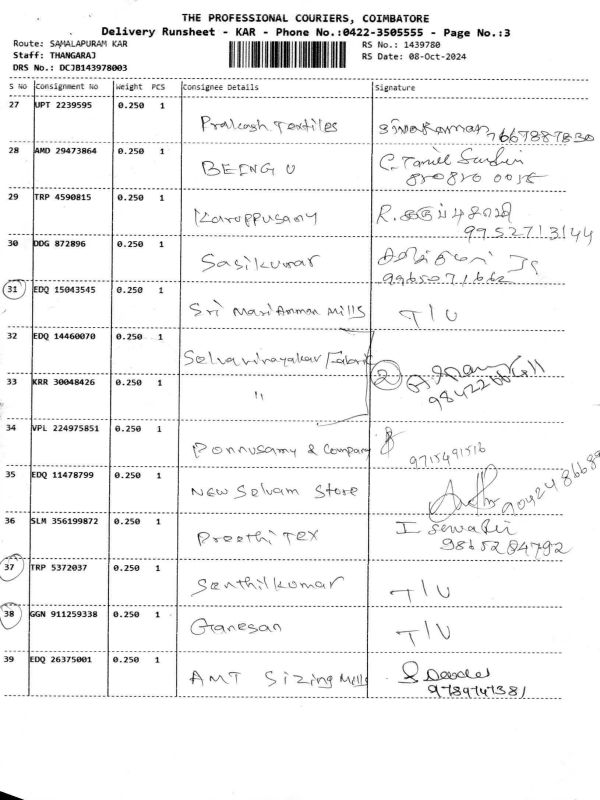 THE PROFESSIONAL COURIERS, COIMBATORE
Delivery Runsheet - KAR - Phone No.:0422-3505555 - Page No.:3
Route: SAMALAPURAM KAR
RS No.: 1439780
Staff: THANGARAJ
RS Date: 08-Oct-2024
DRS No.: DCJB143978003
S No Consignment No Weight PCS Consignee Details Signature
27 UPT 2239595 0.250 1 Prakash Textiles 7667887830
28 AMD 29473864 0.250 1 BEING U
29 TRP 4590815 0.250 1 Karuppusamy R. 9952713144
30 DDG 872896 0.250 1 Sasikumar 9965071662
31 EDQ 15043545 0.250 1 Sri Mariamman Mills T/U
32 EDQ 14460070 0.250 1 Selvavinayakar Fabric
33 KRR 30048426 0.250 1 " 2
34 VPL 224975851 0.250 1 Ponnusamy & Company 9715491516
35 EDQ 11478799 0.250 1 New Selvam Store
36 SLM 356199872 0.250 1 Preethi Tex 9865284792
37 TRP 5372037 0.250 1 Senthilkumar T/U
38 GGN 911259338 0.250 1 Ganesan T/U
39 EDQ 26375001 0.250 1 AMT Sizing Mills 9789747381